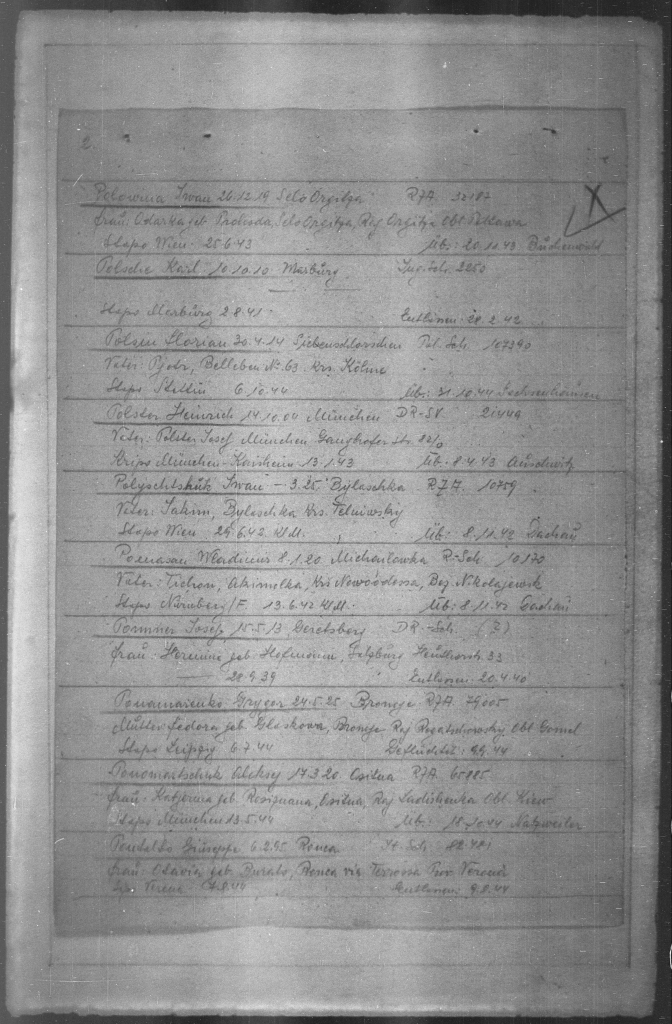 2.
Polowma Iwan 26.12.19 Selo Orgitza RZA. 32187
frau: Odarka geb. Selo Orgitza, Raj Orgitza Obl. Poltawa
Stapo Wien 25.6.43 Üb: 20.11.43 Buchenwald
Polsche Karl 10.10.10 Marburg Jug. Sch. 2250
Stapo Marburg 2.8.41 Entlassen: 28.2.42
Polsen Florian 30.4.14 Pol. Sch. 107390
Vater: Pjotr, Belleben No 63 Krs.
Stapo Stettin 6.10.44 Üb: 31.10.44 Sachsenhausen
Polster Heinrich 14.10.04 München DR-SV. 21449
Vater: Polster Josef München Ganghofer Str. 82/0
Kripo München-Kaisheim 13.1.43 Üb: 8.4.43 Auschwitz
Polyschtshuk Iwan - 3.25 Bylaschka RZA. 10759
Vater: Jakim, Bylaschka Krs. Telniwsky
Stapo Wien 29.6.42 Üb: 8.11.42 Dachau
Pomasan Wladimir 8.1.20 Michailowka R-Sch. 10170
Vater: Tichon, Akimolka, Krs. Nowoodessa, Bez. Nikolajewsk
Stapo Nürnberg/F. 13.6.42 Üb: 8.11.42 Dachau
Pommer Josef 15.5.13 Geretsberg DR-Sch. (2)
frau: Hermine geb. Hofmann, Salzburg 33
28.9.39 Entlassen: 20.4.40
Ponamarenko Grygor 24.5.25 Bronoje RZA 79005
Mutter: Fedora geb. Gloskowa, Bronoje Raj Rogatschowsky Obl. Gomel
Stapo Leipzig 6.7.44 Geflüchtet: 9.9.44
Ponomartschuk Aleksej 17.3.20 Ositna RZA 65885
frau: Katjerina geb. Ositna, Raj Obl. Kiew
Stapo München 13.5.44 Üb: 18.10.44 Natzweiler
Pontalto Giuseppe 6.2.95 Ronca It. Sch. 82481
frau: Otavia geb. Burato, Ronca via Terrossa Prov. Verona
Verona 7.8.44 Entlassen: 9.8.44